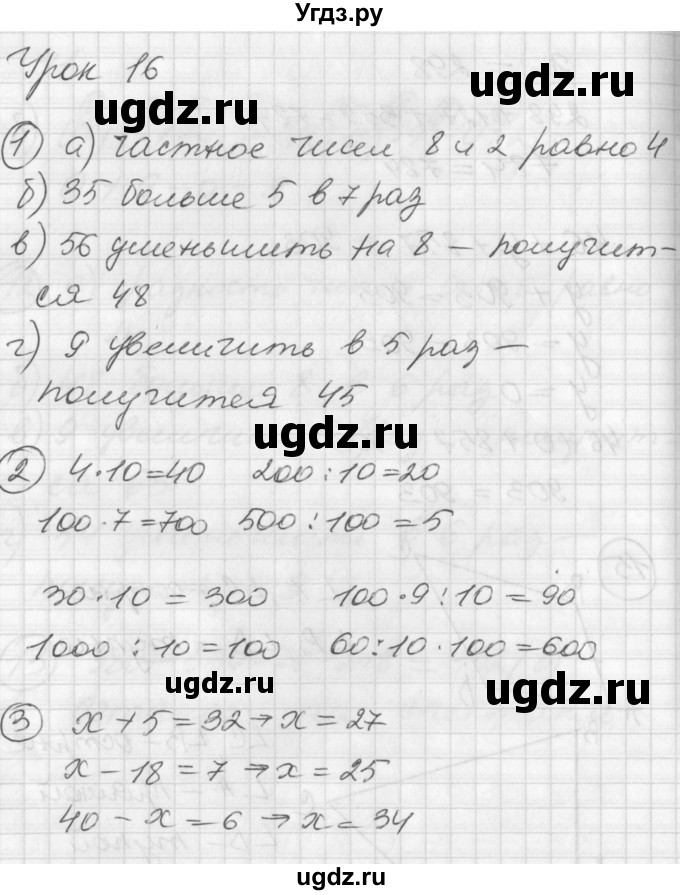 Угдз.ру
Урок 16
ugdz.ru
ugdz.ru
1 а) частное чисел 8 и 2 равно 4
б) 35 больше 5 в 7 раз
в) 56 уменьшить на 8 – получит-
ся 48
г) 9 увеличить в 5 раз –
получится 45
ugdz.ru
2 4·10=40 200:10=20
100·7=700 500:100=5
30·10=300 100·9:10=90
1000:10=100 60:10·100=600
ugdz.ru
ugdz.ru
3 x+5=32→x=27
x-18=7→x=25
40-x=6→x=34
ugdz.ru
ugdz.ru